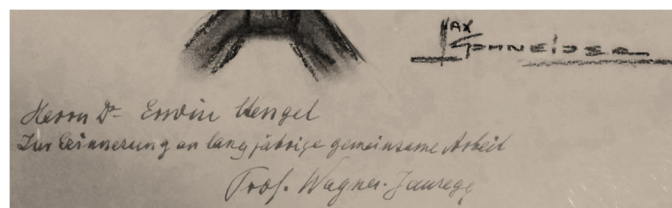 MAX
SCHNEIDER
Herrn Dr. Erwin Stengel
Zur Erinnerung an langjährige gemeinsame Arbeit
Prof. Wagner-Jauregg